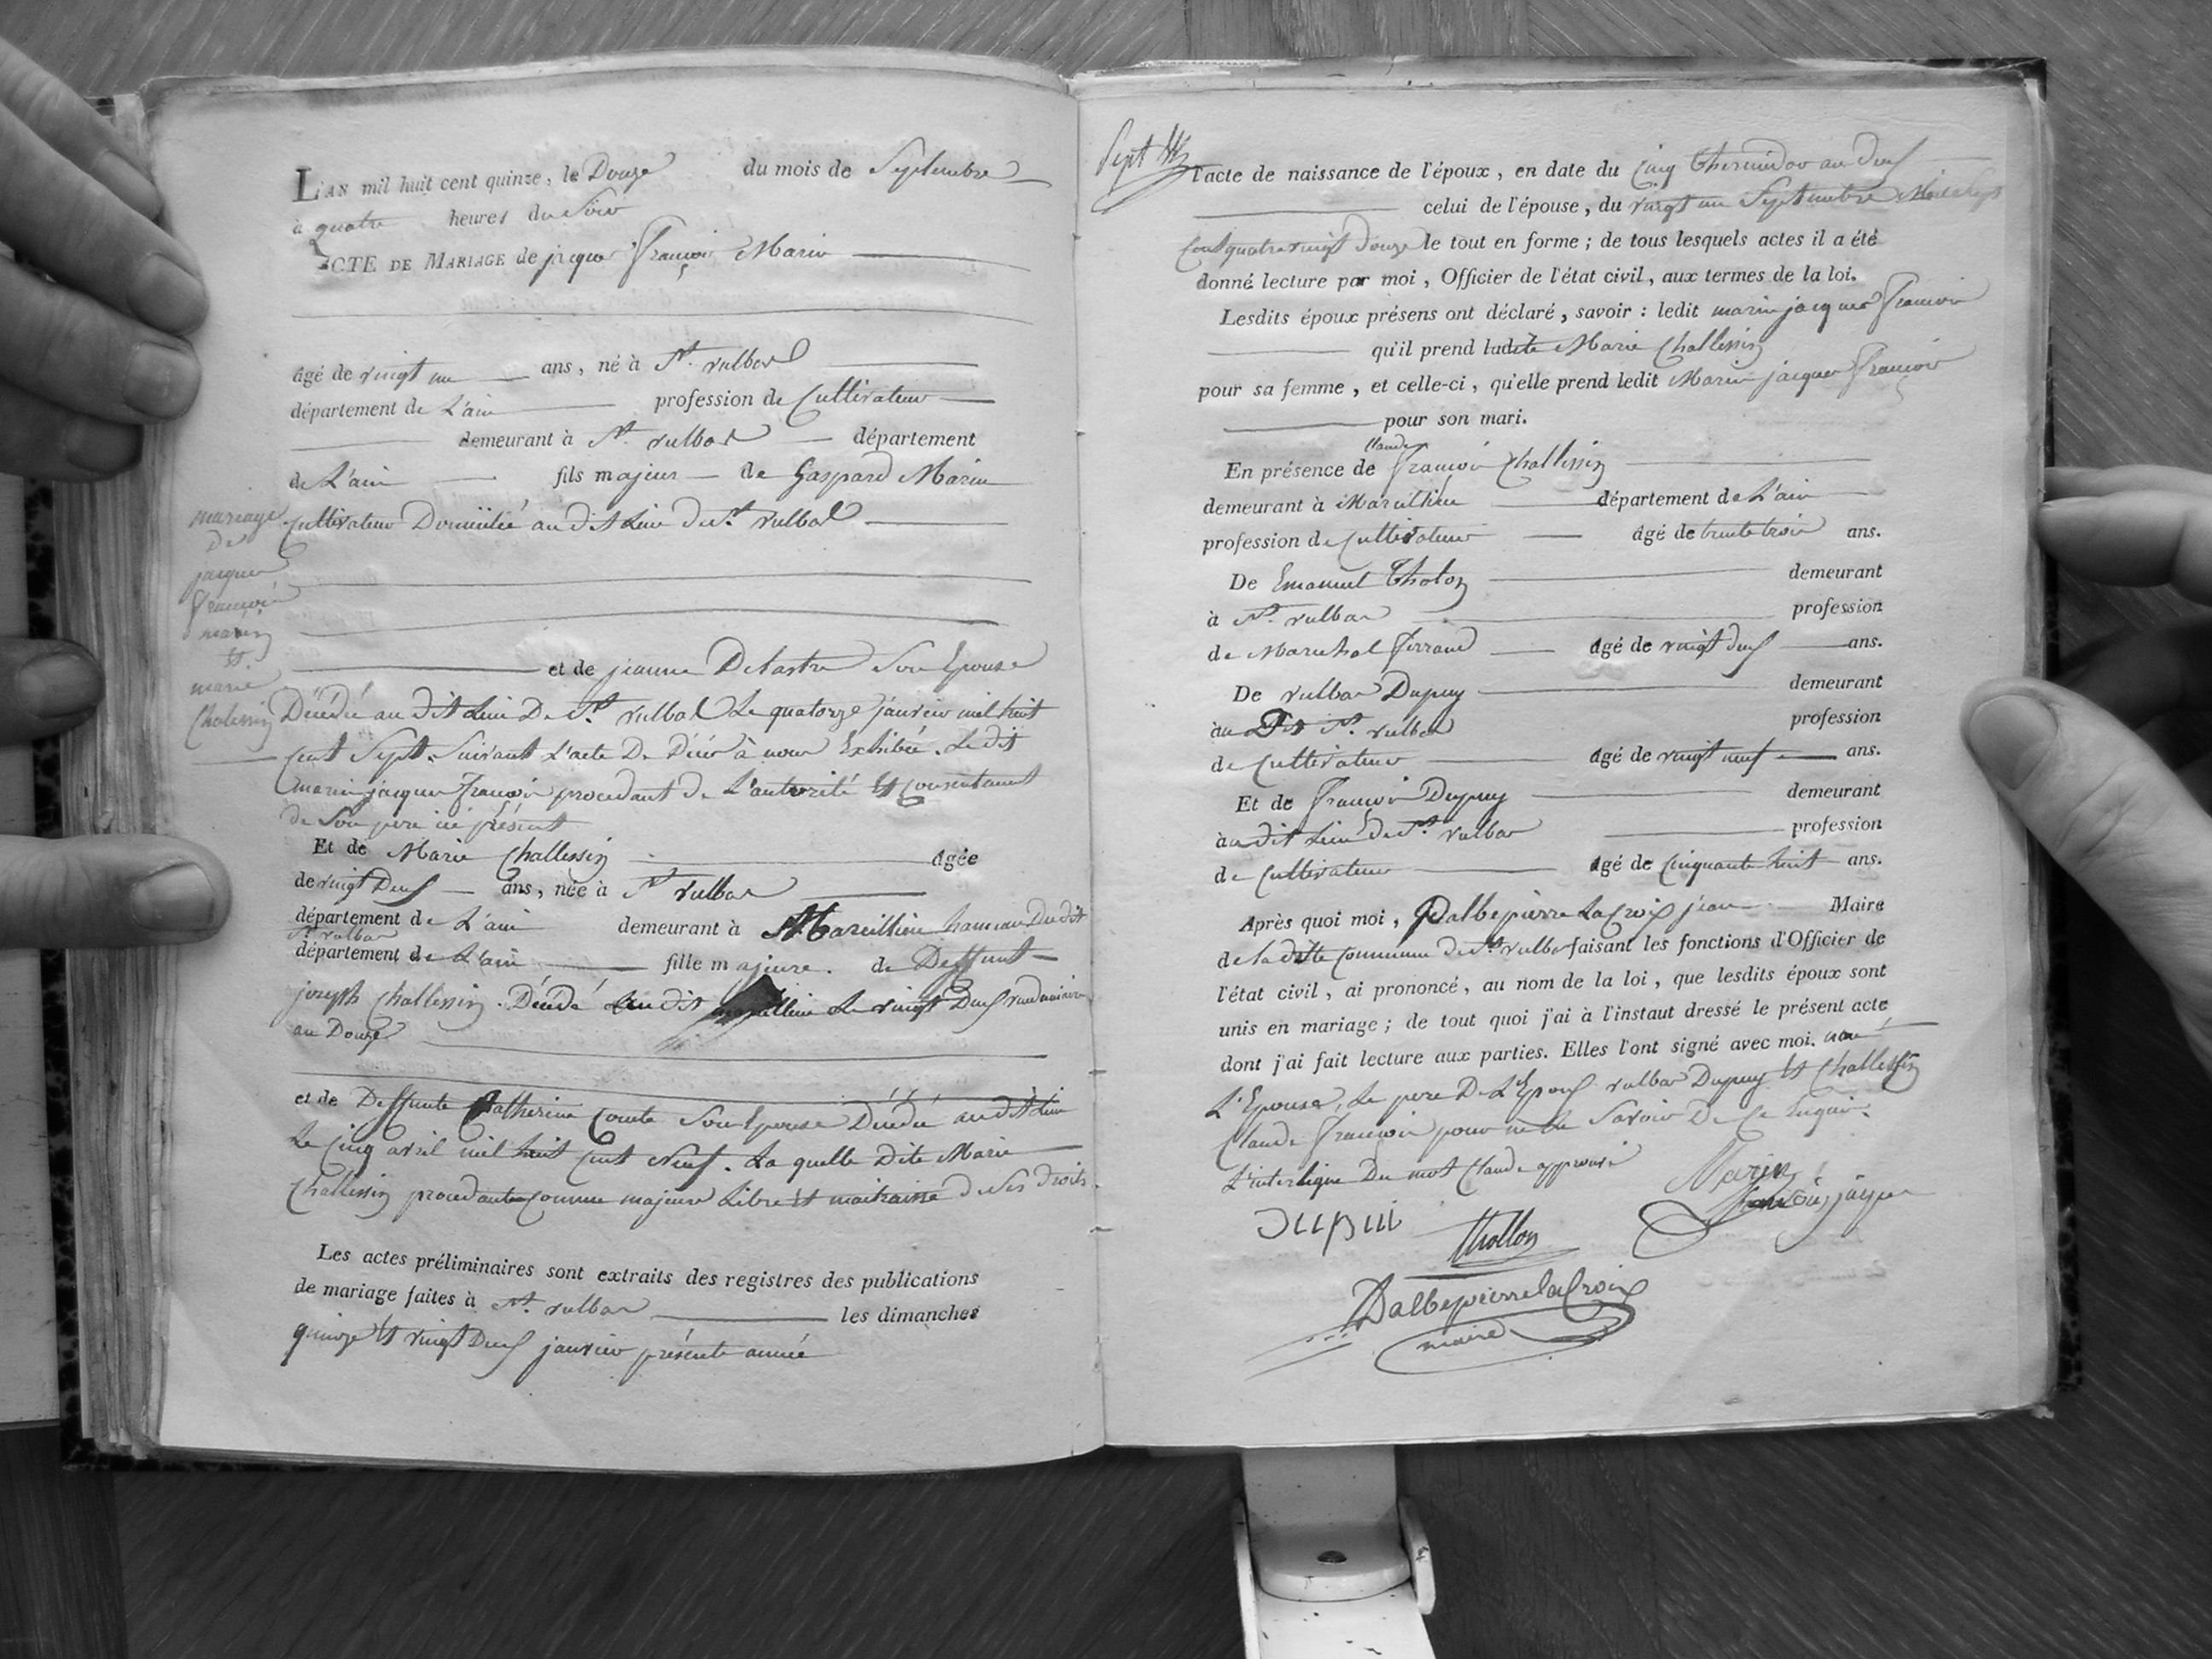 L'AN mil huit cent quinze, le Douze du mois de Septembre
à quatre heures du Soir
ACTE DE MARIAGE de jacque François Marin
âgé de vingt un ans, né à St. vulbas
département de L'ain profession de Cultivateur
demeurant à St. vulbas département
de L'ain fils majeur de Gaspard Marin
Cultivateur Domicilié au dit Lieu de St. vulbas
mariage
De
jacque
François
marin
et
marie
Chalessin
et de jeanne Delastre Son Epouse
Décédée au dit Lieu De St. vulbas Le quatorze janvier mil huit
Cent Sept. Suivant L'acte De Décès à nous Exhibée. Le dit
marin jacque François procedant de L'autorité et consentement
de Son pere ici présent
Et de Marie Challessin âgée
de vingt Deux ans, née à St. vulbas
département de L'ain demeurant à Marcillieu hameau Du dit
St. vulbas
département de L'ain fille majeure. de Deffunt
joseph Challessin. Décédé Au dit Marcillieu Le vingt Deux vendemiaire
an Douze
et de Deffunte Catherine Comte Son Epouse Décédée au dit Lieu
Le Cinq avril mil huit Cent Neuf. La quelle Dite Marie
Challessin procedante comme majeure Libre et maitraisse de Ses Droits.
Les actes préliminaires sont extraits des registres des publications
de mariage faites à St. vulbas les dimanches
quinze et vingt Deux janvier présente année
Sept
l'acte de naissance de l'époux, en date du Cinq Thermidor an Deux
celui de l'épouse, du vingt un Septembre Mil Sept
Cent quatre vingt Douze le tout en forme ; de tous lesquels actes il a été
donné lecture par moi, Officier de l'état civil, aux termes de la loi.
Lesdits époux présens ont déclaré, savoir : ledit marin jacques François
qu'il prend ladite Marie Challessin
pour sa femme, et celle-ci, qu'elle prend ledit Marin jacques François
pour son mari.
Claude
En présence de François Challessin
demeurant à Marcillieu département de L'ain
profession de Cultivateur âgé de trente trois ans.
De Emanuel Tholon demeurant
à St. vulbas profession
de Marechal Ferrand âgé de vingt Deux ans.
De vulbas Dupuy demeurant
au Dit St. vulbas profession
de Cultivateur âgé de vingt neuf ans.
Et de François Dupuy demeurant
au dit Lieu de St. vulbas profession
de Cultivateur âgé de Cinquante huit ans.
Après quoi moi, Dalbepierre LaCroix jean Maire
de la ditte Commune de St. vulbas faisant les fonctions d'Officier de
l'état civil, ai prononcé, au nom de la loi, que lesdits époux sont
unis en mariage ; de tout quoi j'ai à l'instant dressé le présent acte
dont j'ai fait lecture aux parties. Elles l'ont signé avec moi.
L'Epouse, Le pere De L'Epoux vulbas Dupuy et Challessin
Claude François pour ne Le Savoir De Ce Enquis.
L'interligne Du mot Claude approuvé
Marin
François jacque
Dupui
thollon
Dalbepierre laCroix
maire